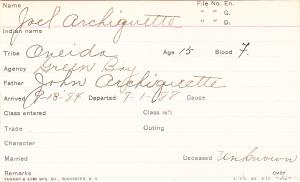 Name Joel Archiquette File No. En.
" " G.
" " D.
Indian name
Tribe Oneida Age 15 Blood 7.
Agency Green Bay
Father John Archiquette
Arrived 9-18-84 Departed 7-1-88 Cause
Class entered Class left
Trade Outing
Character
Married Deceased Unknown
Remarks over
YAWMAN & ERBE MFG. CO., ROCHESTER, N. Y.